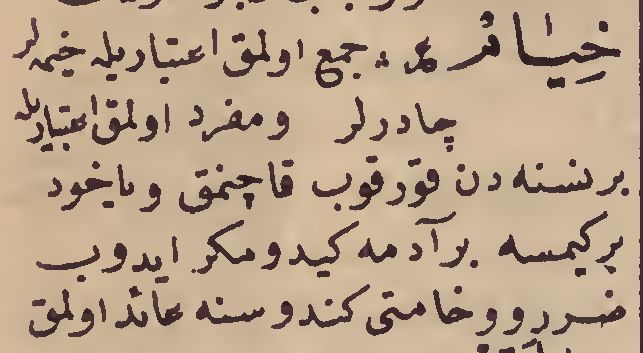 خيائم عر جمع اولمق اعتباريله خيمه لر
چادرلر ومفرد اولمق اعتباريله
برنسنه دن قورقوب قاچنمق وياخود
بركيمسه برآدمه كيدومكر ايدوب
ضررووخامتى كندوسنه عائد اولمق